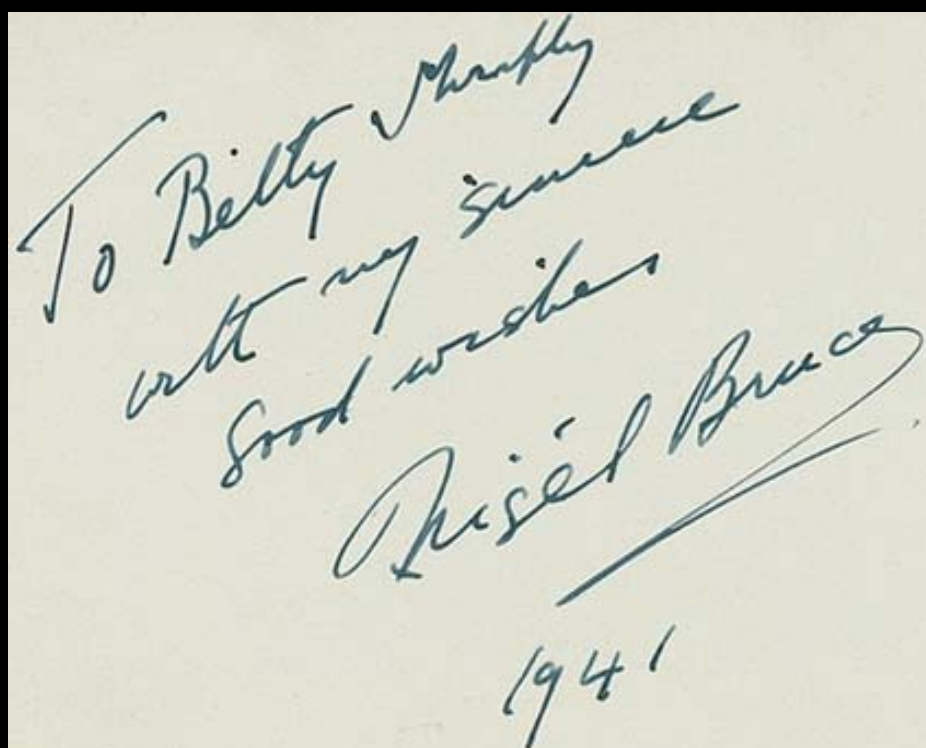 To Betty Murphy
with my sincere
Good wishes
Nigel Bruce
1941